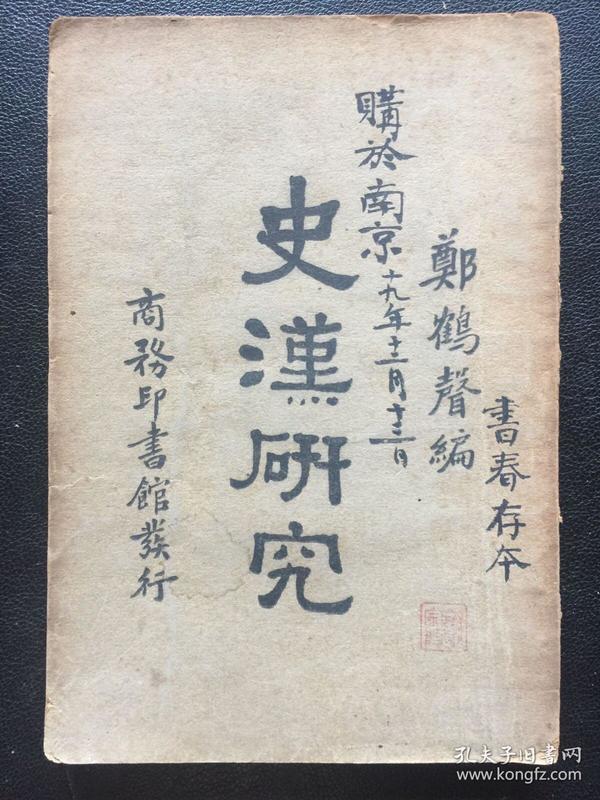 書春存本
鄭鶴聲編
購於南京十九年十二月十三日
史漢研究
商務印書館發行
孔夫子旧书网
www.kongfz.com